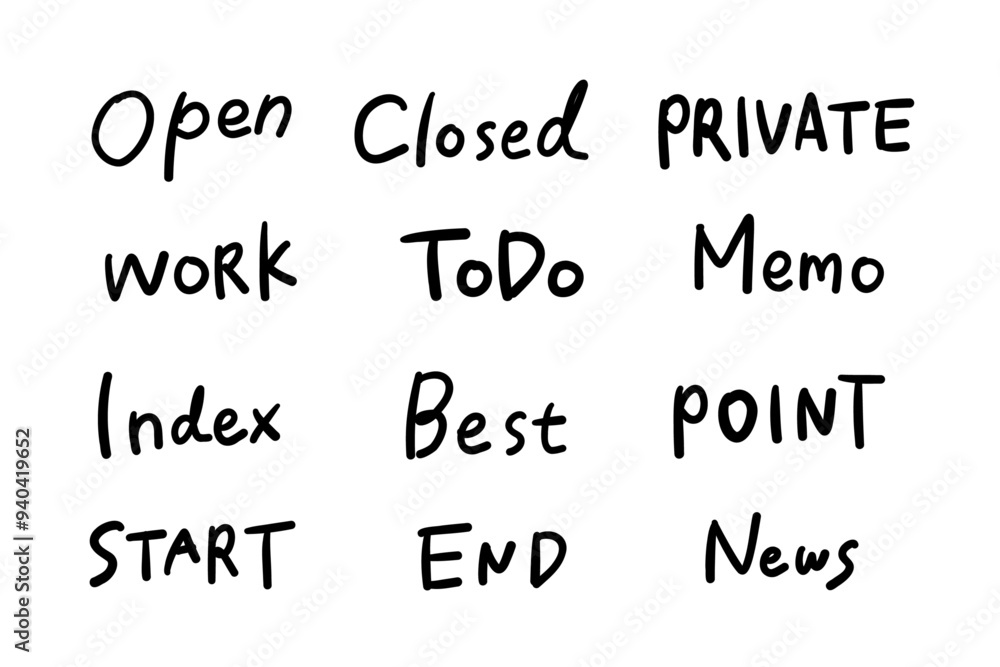 Open Closed PRIVATE
WORK ToDo Memo
Index Best POINT
START END News
Adobe Stock | #940419652